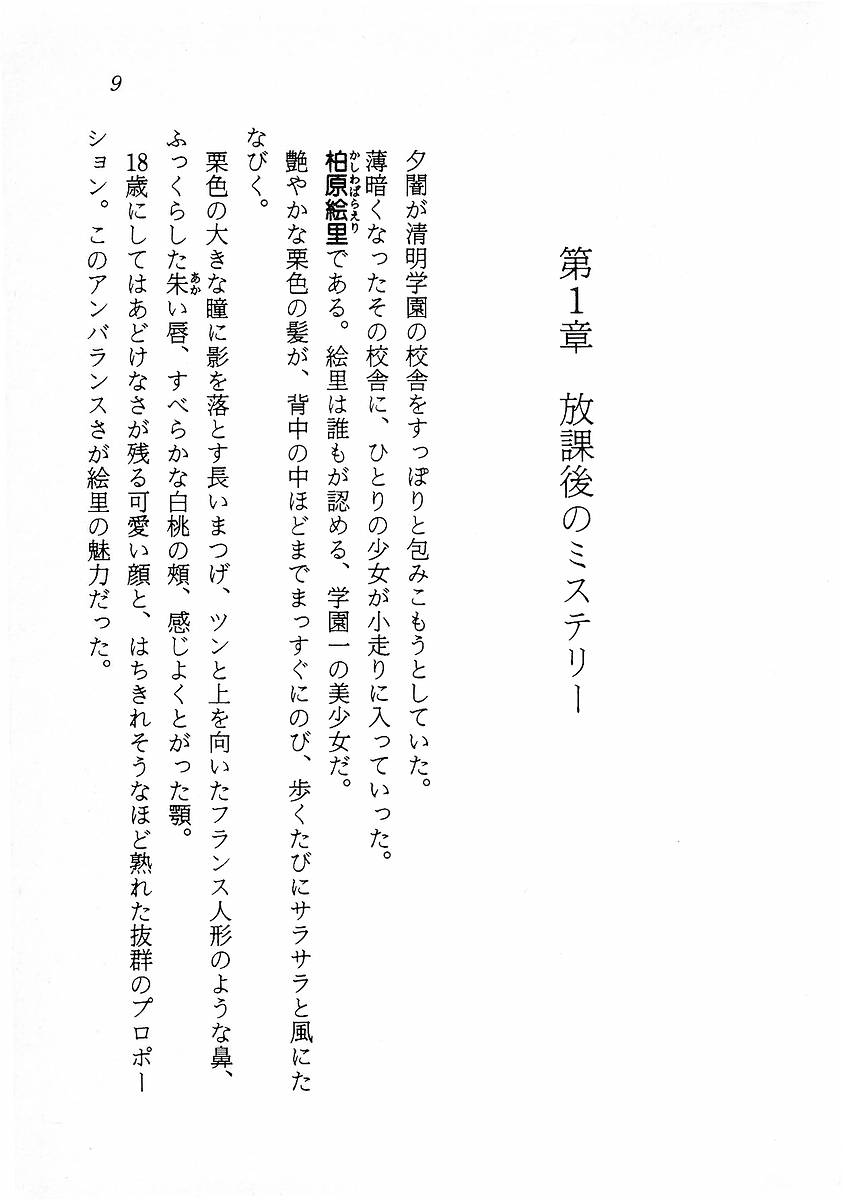 9
第1章　放課後のミステリー
夕闇が清明学園の校舎をすっぽりと包みこもうとしていた。
薄暗くなったその校舎に、ひとりの少女が小走りに入っていった。
柏原絵里である。絵里は誰もが認める、学園一の美少女だ。
かしわばらえり
艶やかな栗色の髪が、背中の中ほどまでまっすぐにのび、歩くたびにサラサラと風にた
なびく。
栗色の大きな瞳に影を落とす長いまつげ、ツンと上を向いたフランス人形のような鼻、
ふっくらした朱い唇、すべらかな白桃の頰、感じよくとがった顎。
あか
18歳にしてはあどけなさが残る可愛い顔と、はちきれそうなほど熟れた抜群のプロポー
ション。このアンバランスさが絵里の魅力だった。